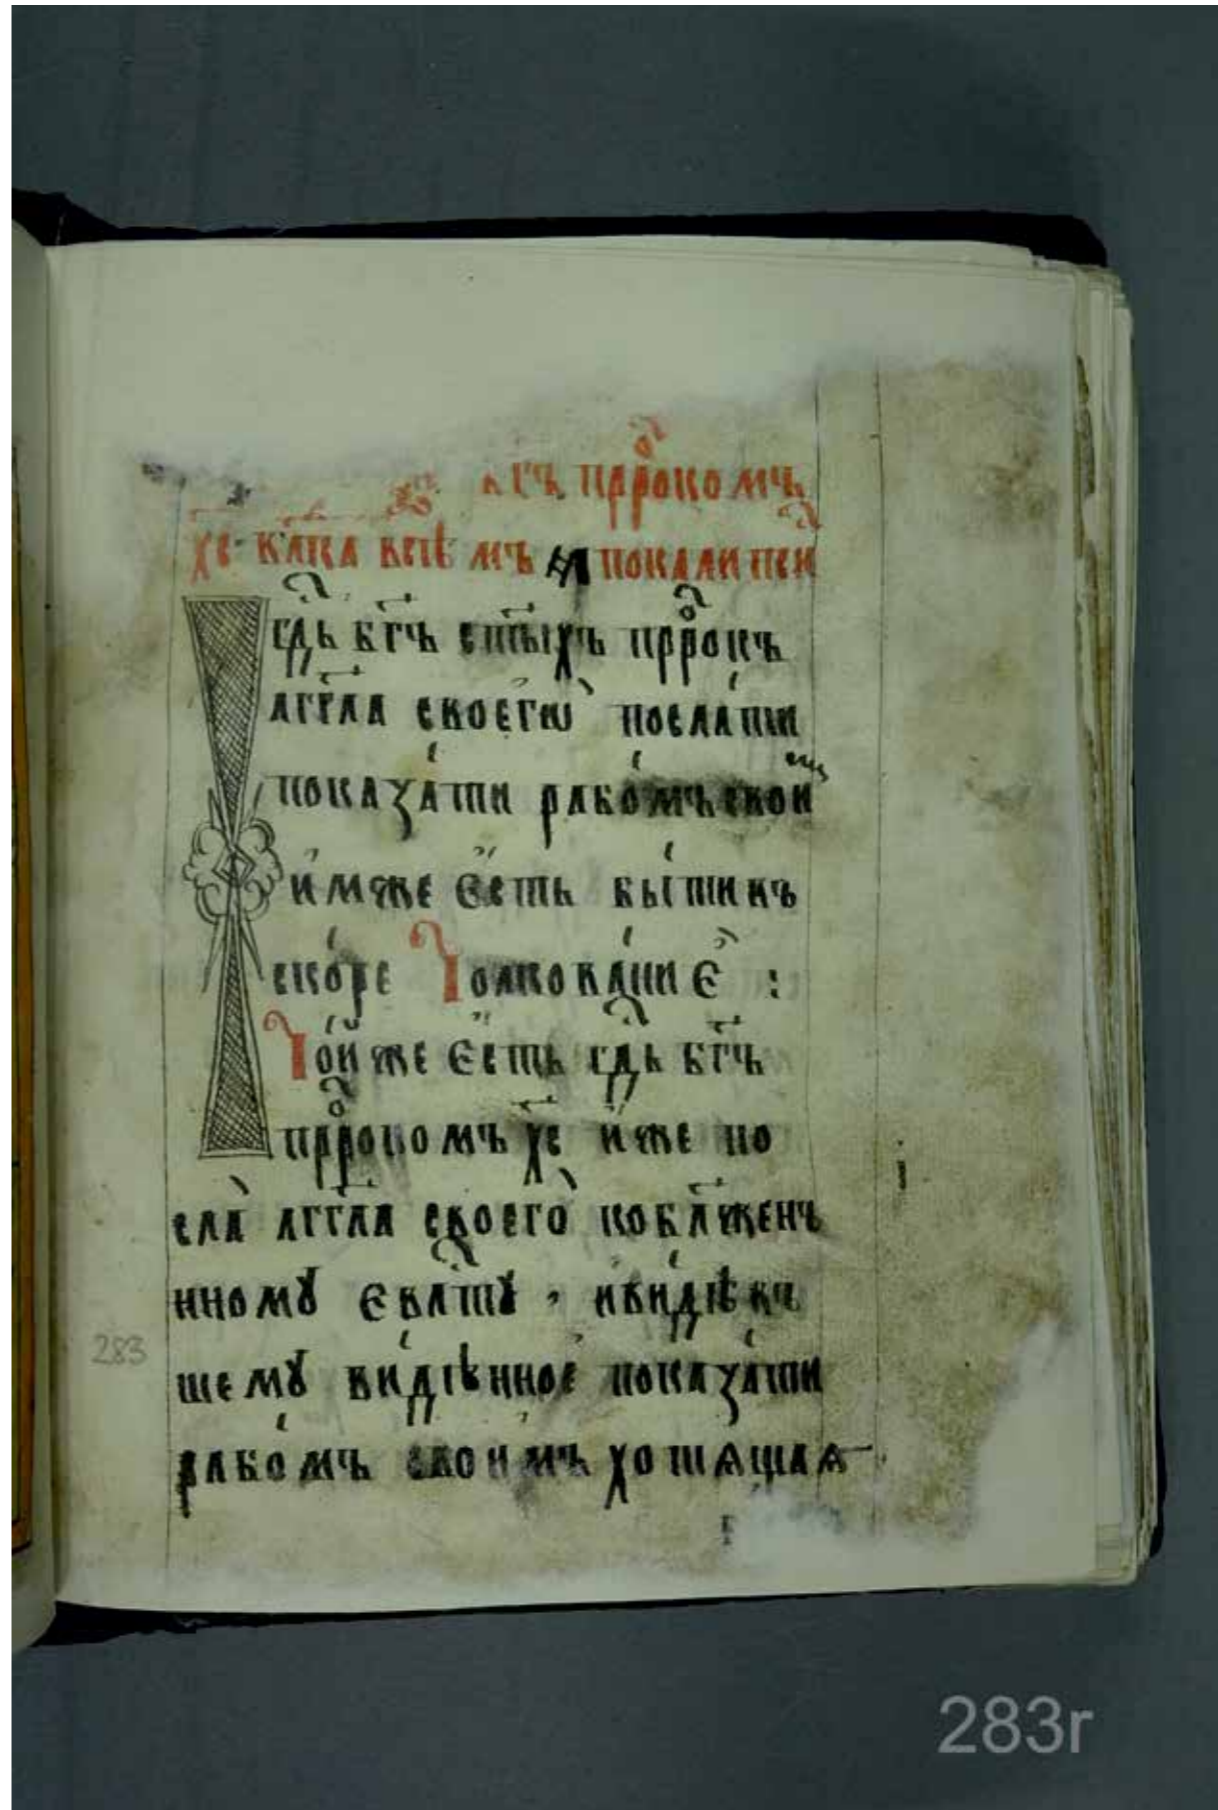 бг҃ъ прⷪ҇рокомъ
хс҃ влⷣка всѣмъ апокалипси
І гдⷭ҇ь бг҃ъ ст҃ыхъ прⷪ҇рокъ
агг҃ла своегѡ̀ посла́ти
показа́ти рабо́мъ свои
и́мже є҆́сть бы́ти въ
ско́ре Толкова́ниє :
То́йже є҆́сть гдⷭ҇ь бг҃ъ
прⷪ҇рокомъ хс҃ и҆́же по
сла̀ агг҃ла своего̀ ко бл҃жен
нному єѵⷢ҇листу , и ви́дѣв
шему ви́дѣнноє показа́ти
рабо́мъ свои́мъ хотѧщаѧ
283
283r